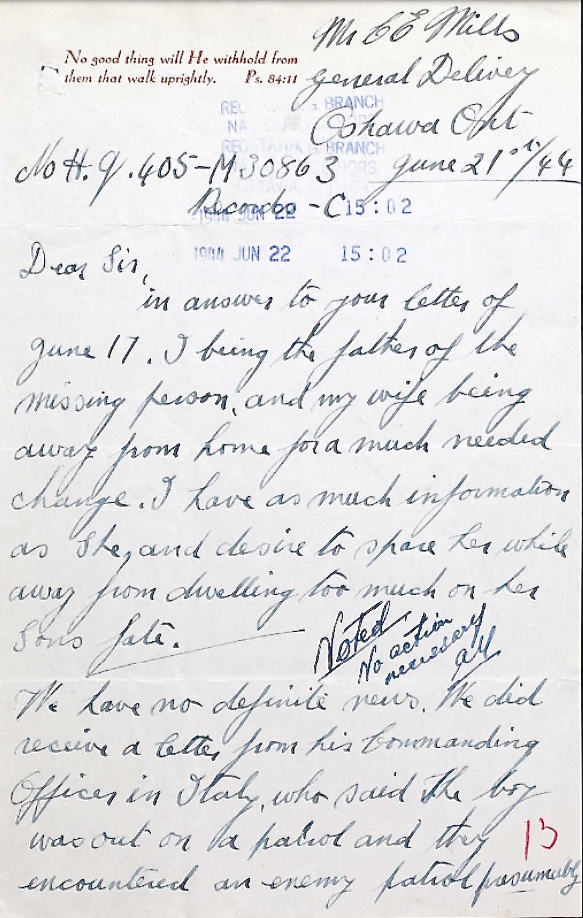 Mr C E Mills
No good thing will He withhold from
them that walk uprightly. Ps. 84:11
General Delivey
Oshawa Ont
No H. Q. 405-M30863
June 21st/44
Records - C
BRANCH
BRANCH
1944 JUN 22 15:02
1944 JUN 22 15:02
Dear Sir,
in answer to your letter of
June 17. I being the father of the
missing person, and my wife being
away from home for a much needed
change. I have as much information
as she, and desire to spare her while
away from dwelling too much on her
Sons fate.
Noted
No action
necessary
We have no definite news. We did
receive a letter from his Commanding
Officer in Italy, who said the boy
was out on a patrol and they
13
encountered an enemy patrol pr